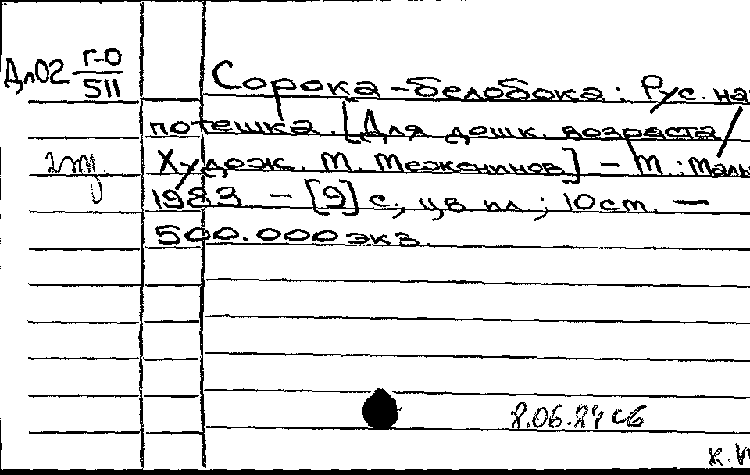 Дл02 Г-0
511
Сорока-белобока: Рус. на
потешка. [Для дошк. возраста/
Худож. М. Меженинов] – М.: Малы
1983 – [9] с, цв ил; 10 см. –
500.000 экз.
8.06.84 сб
к.